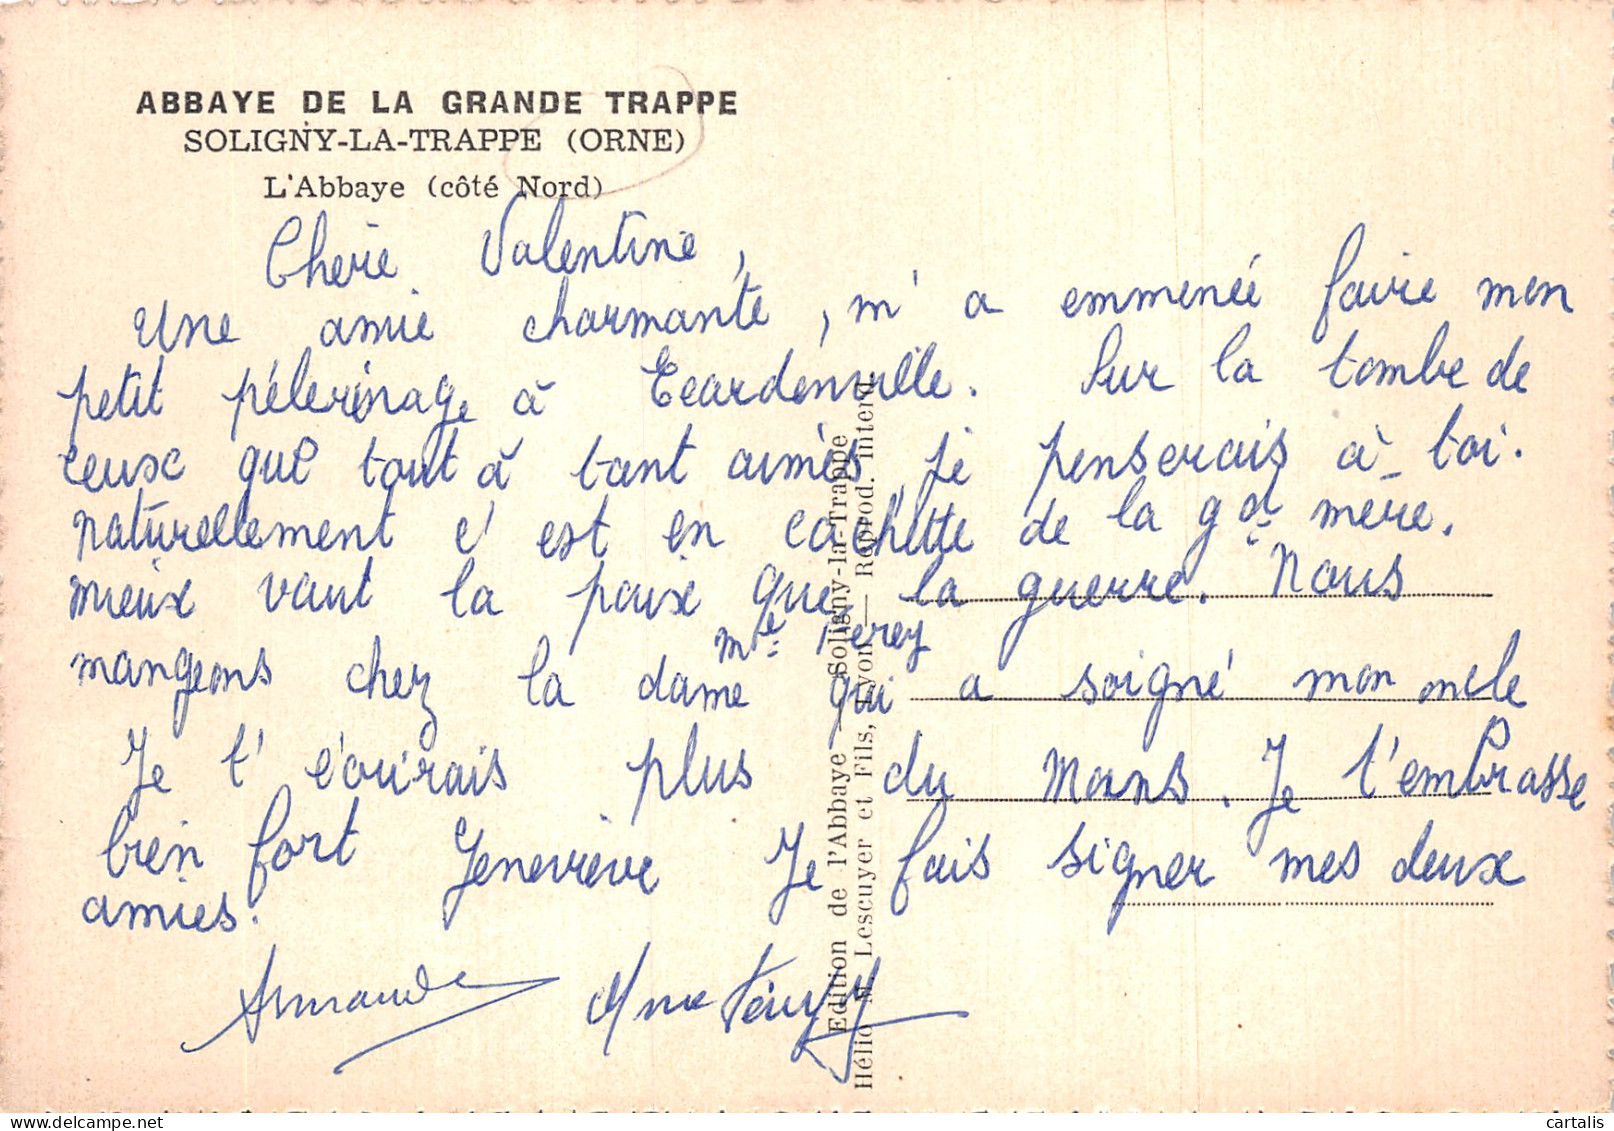 ABBAYE DE LA GRANDE TRAPPE
SOLIGNY-LA-TRAPPE (ORNE)
L'Abbaye (côté Nord)
Cherie Valentine,
Une amie charmante, m'a emmenéé faire mon
petit pélerinage à Ecardenville. Sur la tombe de
ceusc que tout à tant aimés, je penserais à toi.
naturellement c'est en cachette de la gd mère.
mieux vaut la paix que la guerre. Nous
mangeons chez la dame qui a soigné mon oncle
Mme Perey
Je t'écrirais plus du Mans. Je t'embrasse
bien fort Geneviève Je fais signer mes deux
amies.
Armande
Edition de l'Abbaye — Soligny-la-Trappe
Hélio M. Lescuyer et Fils, Lyon — Reprod. interd.
cartalis